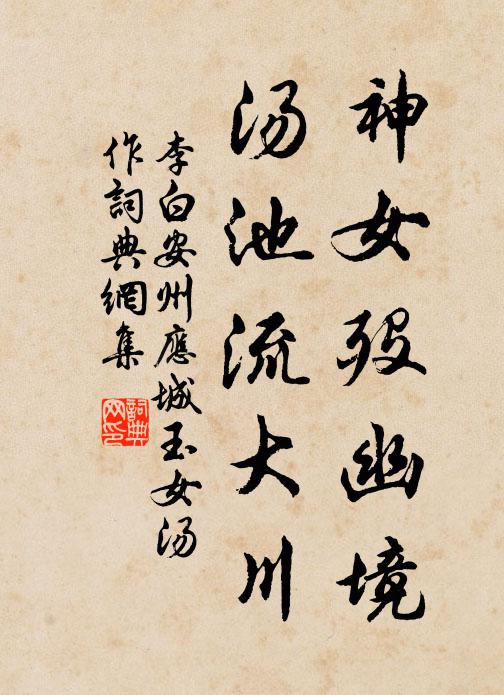 神女歿幽境
汤池流大川
李白安州應城玉女汤
作詞典網集
詞典
网印